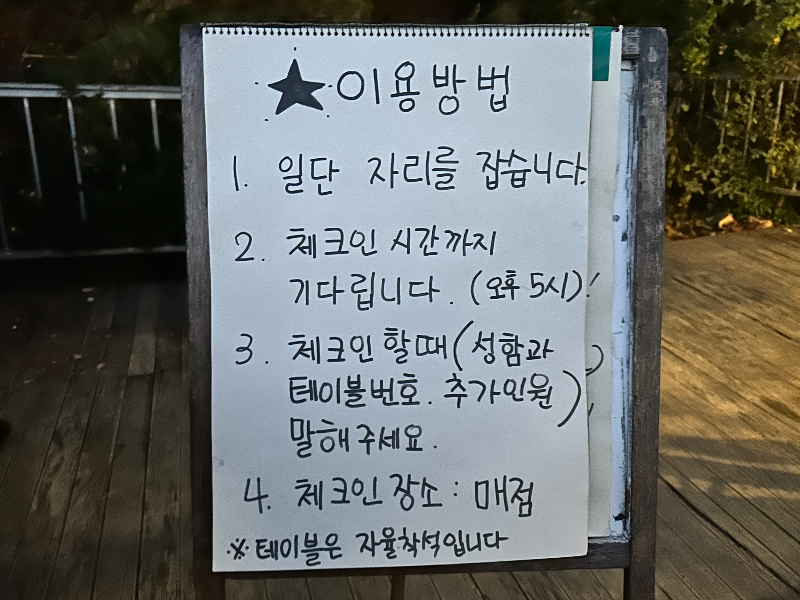 ★이용방법
1. 일단 자리를 잡습니다.
2. 체크인 시간까지
기다립니다. (오후 5시)
3. 체크인 할때(성함과
테이블번호. 추가인원)
말해주세요.
4. 체크인 장소 : 매점
※ 테이블은 자율착석입니다